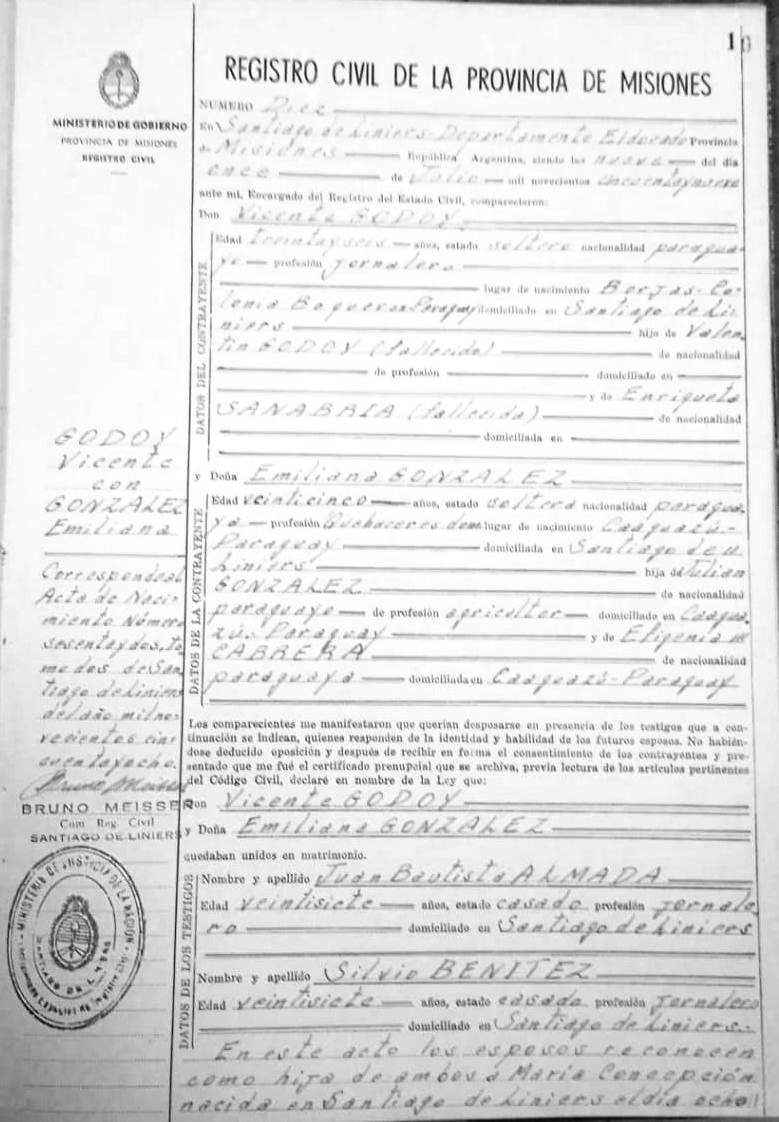 10
REGISTRO CIVIL DE LA PROVINCIA DE MISIONES
MINISTERIO DE GOBIERNO
PROVINCIA DE MISIONES
REGISTRO CIVIL
NUMERO Diez
En Santiago de Liniers-Departamento Eldorado Provincia
de Misiones República Argentina, siendo las nueve del día
once de Julio mil novecientos cincuentaynueve
ante mi, Encargado del Registro del Estado Civil, comparecieron:
Don Vicente GODOY
DATOS DEL CONTRAYENTE
Edad treintayseis años, estado soltero nacionalidad paragua-
yo profesión jornalero
lugar de nacimiento Borjas-Co-
lonia Boqueron Paraguay domiciliado en Santiago de Li-
niers hijo de Valen-
tín GODOY (fallecido) de nacionalidad
de profesión domiciliado en
y de Enriqueta
SANABRIA (fallecida) de nacionalidad
domiciliada en
y Doña Emiliana GONZALEZ
DATOS DE LA CONTRAYENTE
Edad veinticinco años, estado soltera nacionalidad paragua-
ya profesión Quehaceres dom lugar de nacimiento Caaguazú-
Paraguay domiciliada en Santiago de
Liniers hija de Julian
GONZALEZ de nacionalidad
paraguayo de profesión agricultor domiciliado en Caagua-
zú-Paraguay y de
CABRERA de nacionalidad
paraguaya domiciliada en Caaguazú-Paraguay
GODOY
Vicente
con
GONZALEZ
Emiliana
Corresponde al
Acta de Naci-
miento Número
sesentaydos, to-
mo dos de San-
tiago de Liniers
del año mil no-
vecientos cin-
cuentayocho.
Bruno Meisser
BRUNO MEISSER
Com Reg. Civil
SANTIAGO DE LINIERS
MINISTERIO DE JUSTICIA DE LA NACION
SANTIAGO DE LINIERS
Los comparecientes me manifestaron que querían desposarse en presencia de los testigos que a con-
tinuación se indican, quienes responden de la identidad y habilidad de los futuros esposos. No habién-
dose deducido oposición y después de recibir en forma el consentimiento de los contrayentes y pre-
sentado que me fué el certificado prenupcial que se archiva, previa lectura de los artículos pertinentes
del Código Civil, declaré en nombre de la Ley que:
Don Vicente GODOY
y Doña Emiliana GONZALEZ
quedaban unidos en matrimonio.
DATOS DE LOS TESTIGOS
Nombre y apellido Juan Bautista ALMADA
Edad veintisiete años, estado casado profesión jornale-
ro domiciliado en Santiago de Liniers
Nombre y apellido Silvio BENITEZ
Edad veintisiete años, estado casado profesión jornalero
domiciliado en Santiago de Liniers.-
En este acto los esposos reconocen
como hija de ambos a María Concepción
nacida en Santiago de Liniers el día ocho